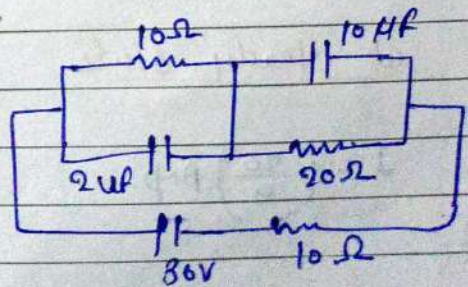 10Ω 10μf
2μf 20Ω
30V 10Ω